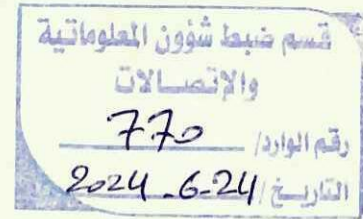 قسم ضبط شؤون المعلوماتية
والإتصالات
رقم الوارد/ 770
التاريخ/ 2024-6-24